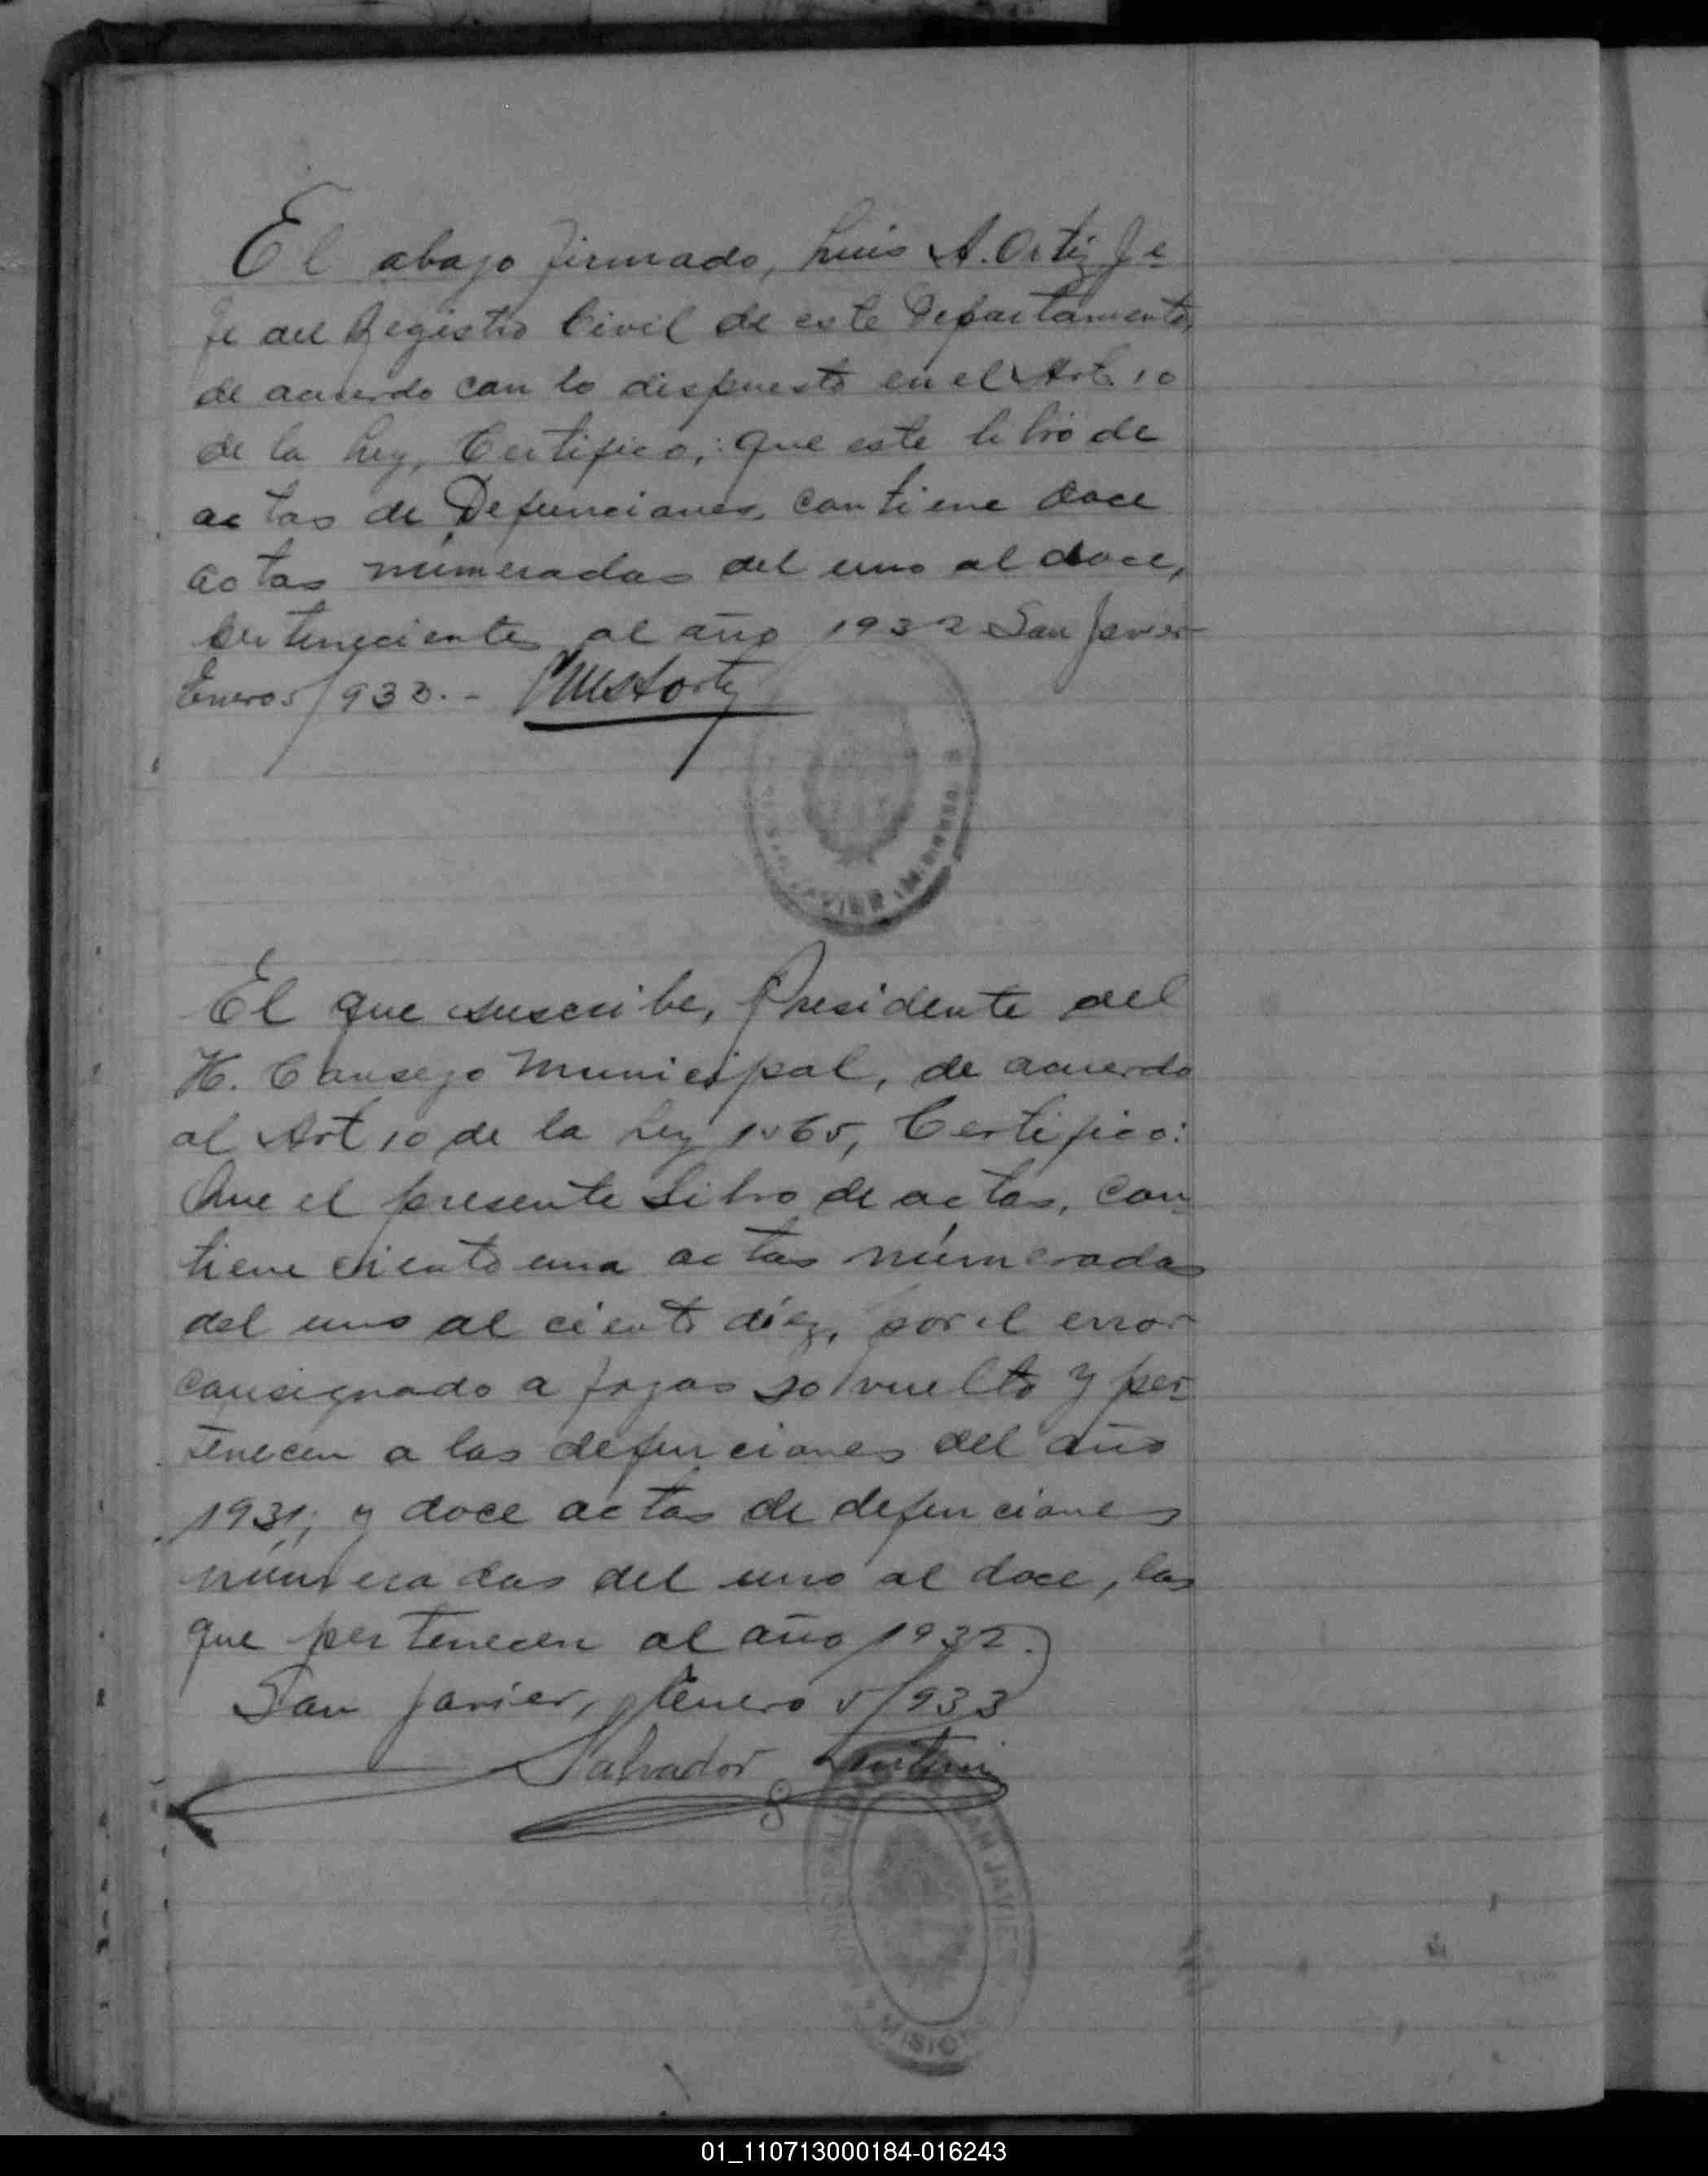 El abajo firmado, Luis A. Ortiz Je
fe del Registro Civil de este Departamento,
de acuerdo con lo dispuesto en el Art. 10
de la Ley, Certifico,: que este libro de
actas de Defunciones, contiene doce
actas númeradas del uno al doce,
perteneciente al año 1932 San Javier
Enero 5/933.-
El que suscribe, Presidente del
H. Consejo Municipal, de acuerdo
al Art 10 de la Ley 1565, Certifico:
Que el presente Libro de actas, con
tiene ciento una actas númeradas
del uno al ciento díez, por el error
consignado a fojas vuelto y per
tenecen a las defunciones del año
1931; y doce actas de defunciones
númeradas del uno al doce, las
que pertenecen al año 1932.
San Javier, Enero 5/933
Salvador
SAN JAVIER
MISIO
01_110713000184-016243